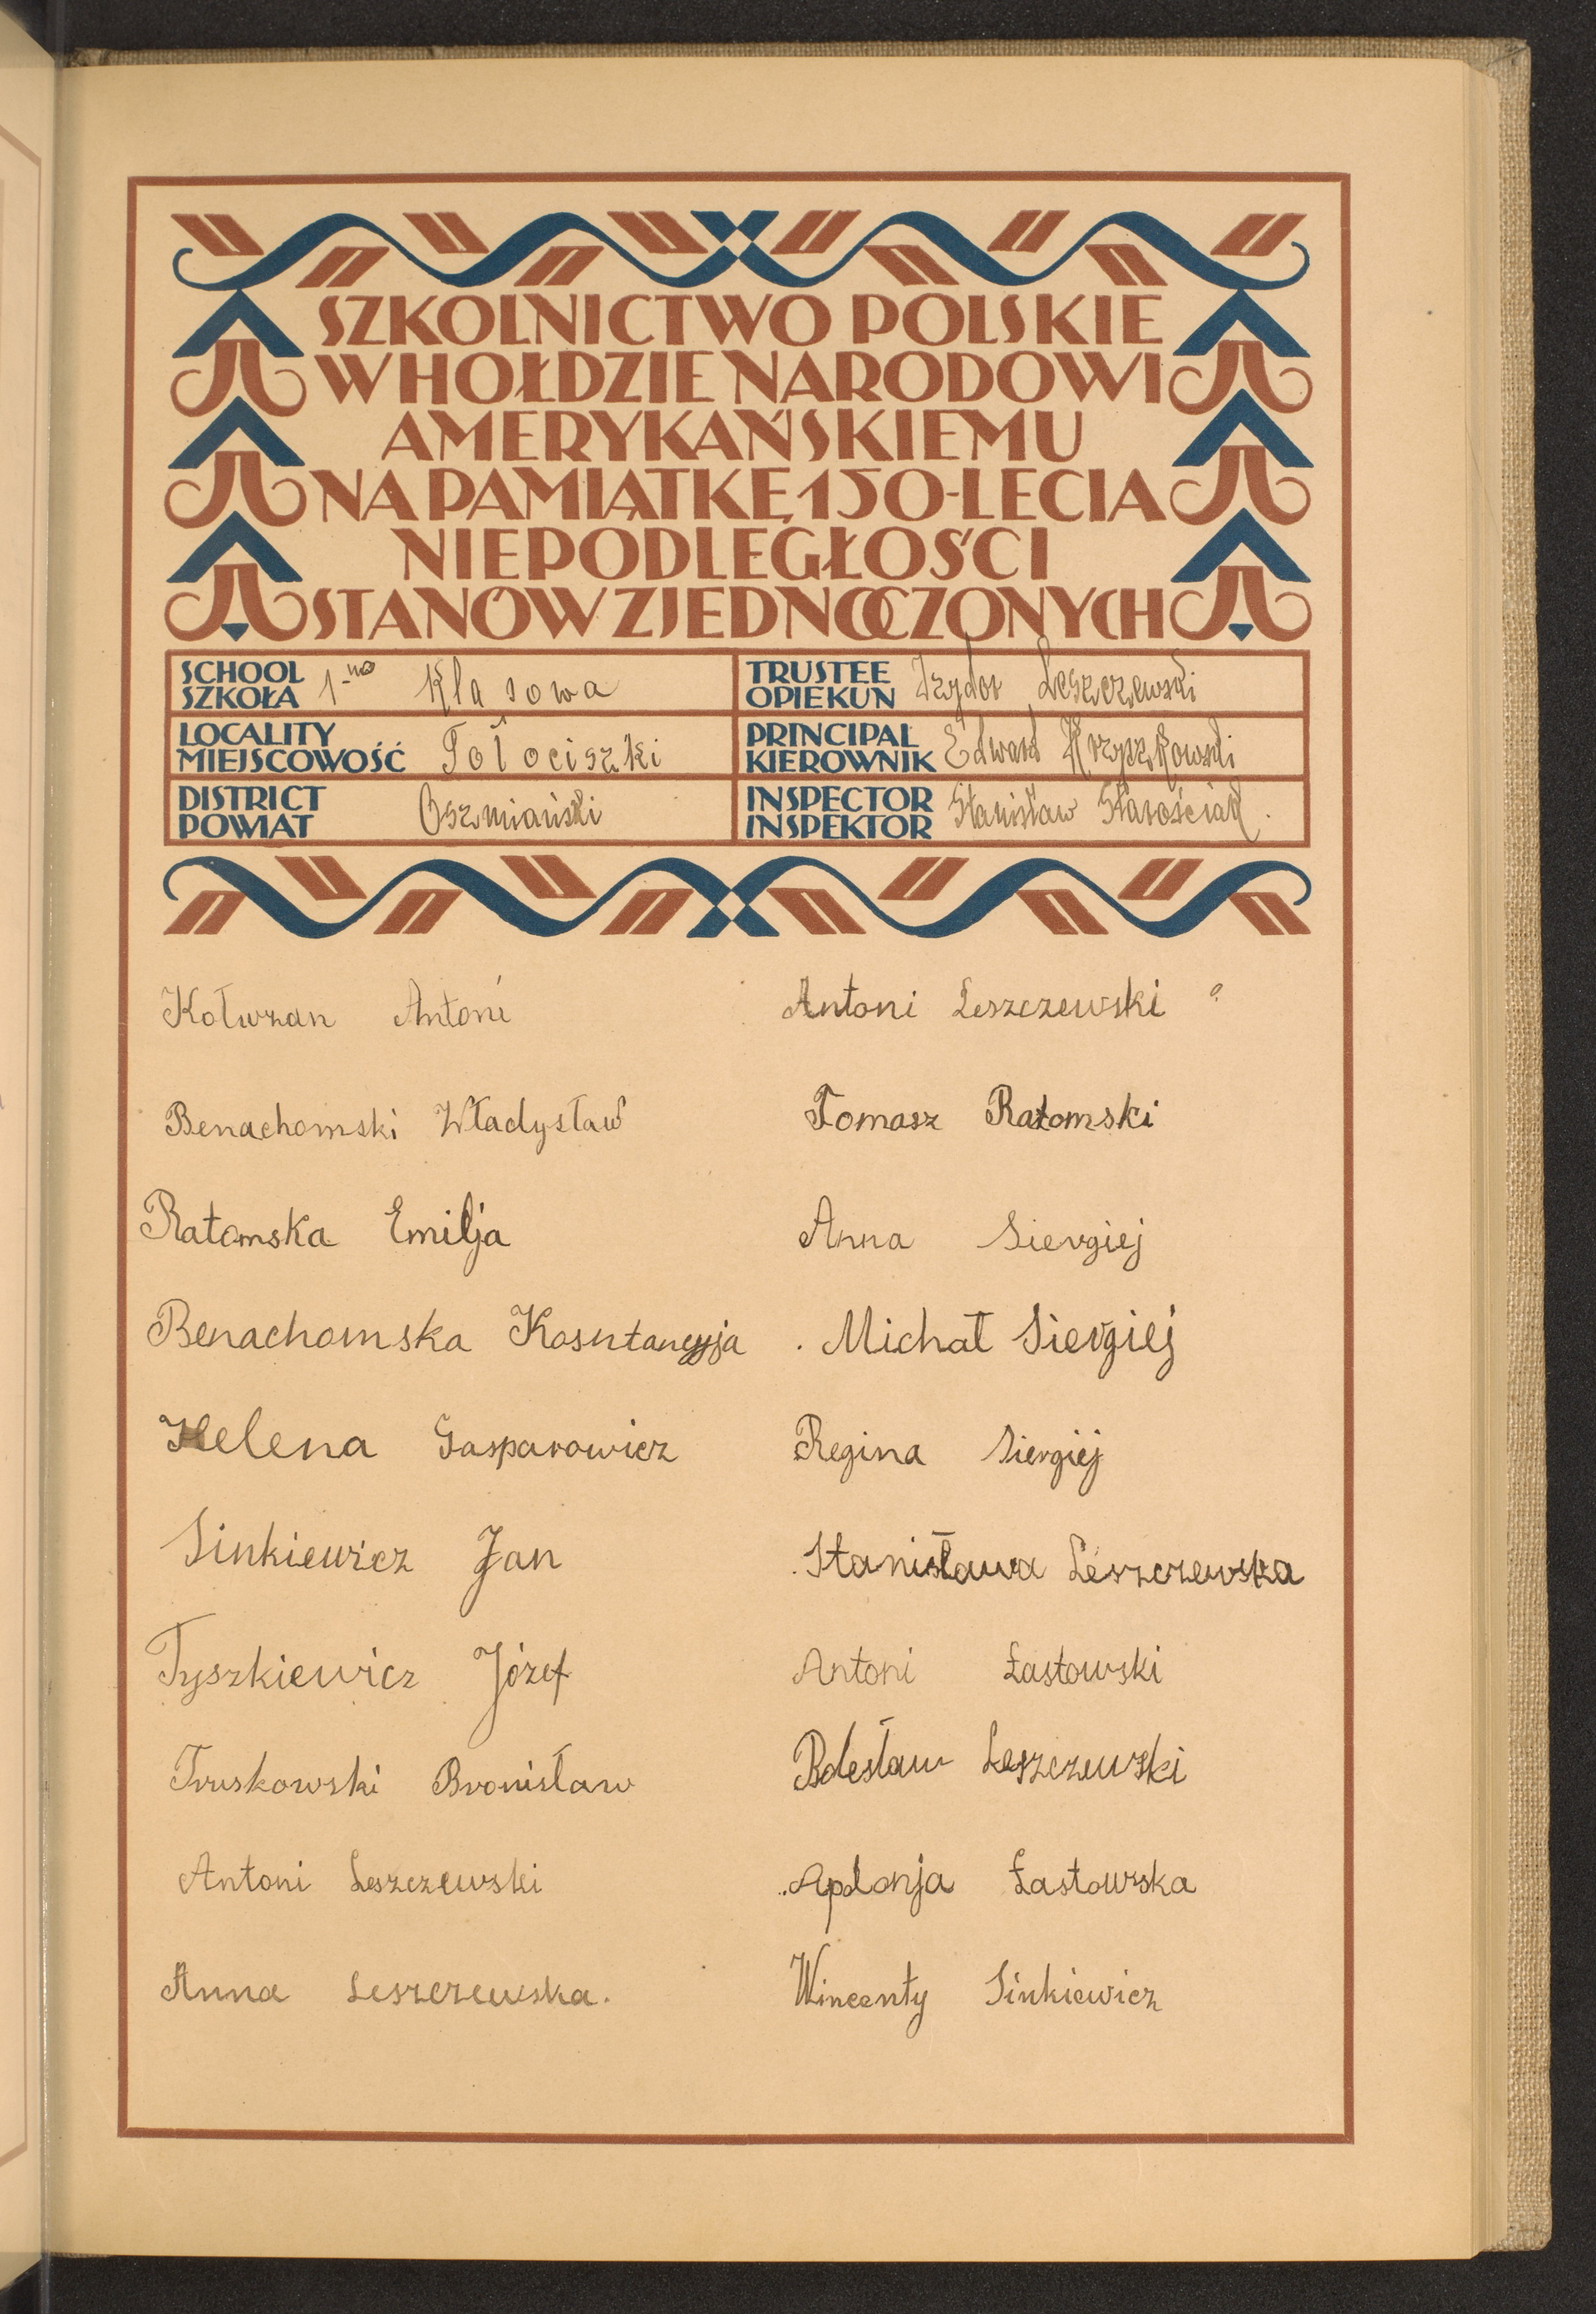 SZKOLNICTWO POLSKIE
W HOŁDZIE NARODOWI
AMERYKAŃSKIEMU
NA PAMIĄTKĘ 150-LECIA
NIEPODLEGŁOŚCI
STANÓW ZJEDNOCZONYCH
SCHOOL
SZKOŁA 1-no Klasowa
TRUSTEE
OPIEKUN Izydor Leszczewski
LOCALITY
MIEJSCOWOŚĆ Tołociszki
PRINCIPAL
KIEROWNIK Edward Krzyszkowski
DISTRICT
POWIAT Oszmiański
INSPECTOR
INSPEKTOR Stanisław Starościak.
Kołwzan Antoni
Benachomski Władysław
Ratomska Emilja
Benachomska Kosntancyja
Helena Gasparowicz
Sinkiewicz Jan
Tyszkiewicz Józef
Truskowski Bronisław
Antoni Leszczewski
Anna Leszczewska.
Antoni Leszczewski
Tomasz Ratomski
Anna Siergiej
Michał Siergiej
Regina Siergiej
Stanisława Leszczewska
Antoni Łastowski
Bolesław Leszczewski
Apolonja Łastowska
Wincenty Sinkiewicz